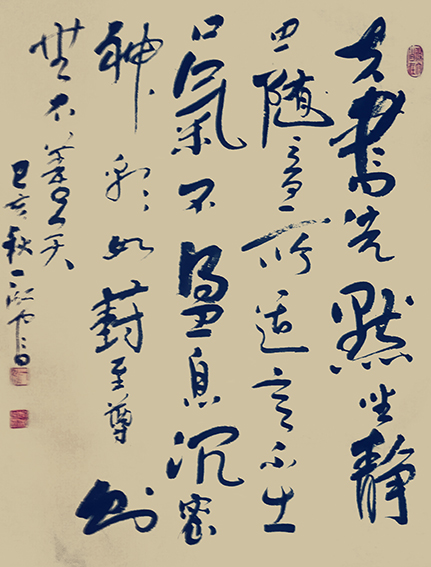 夫書先默坐静
思隨意所適言不出
口氣不盈息沉密
神彩如對至尊則
無不善矣
己亥秋